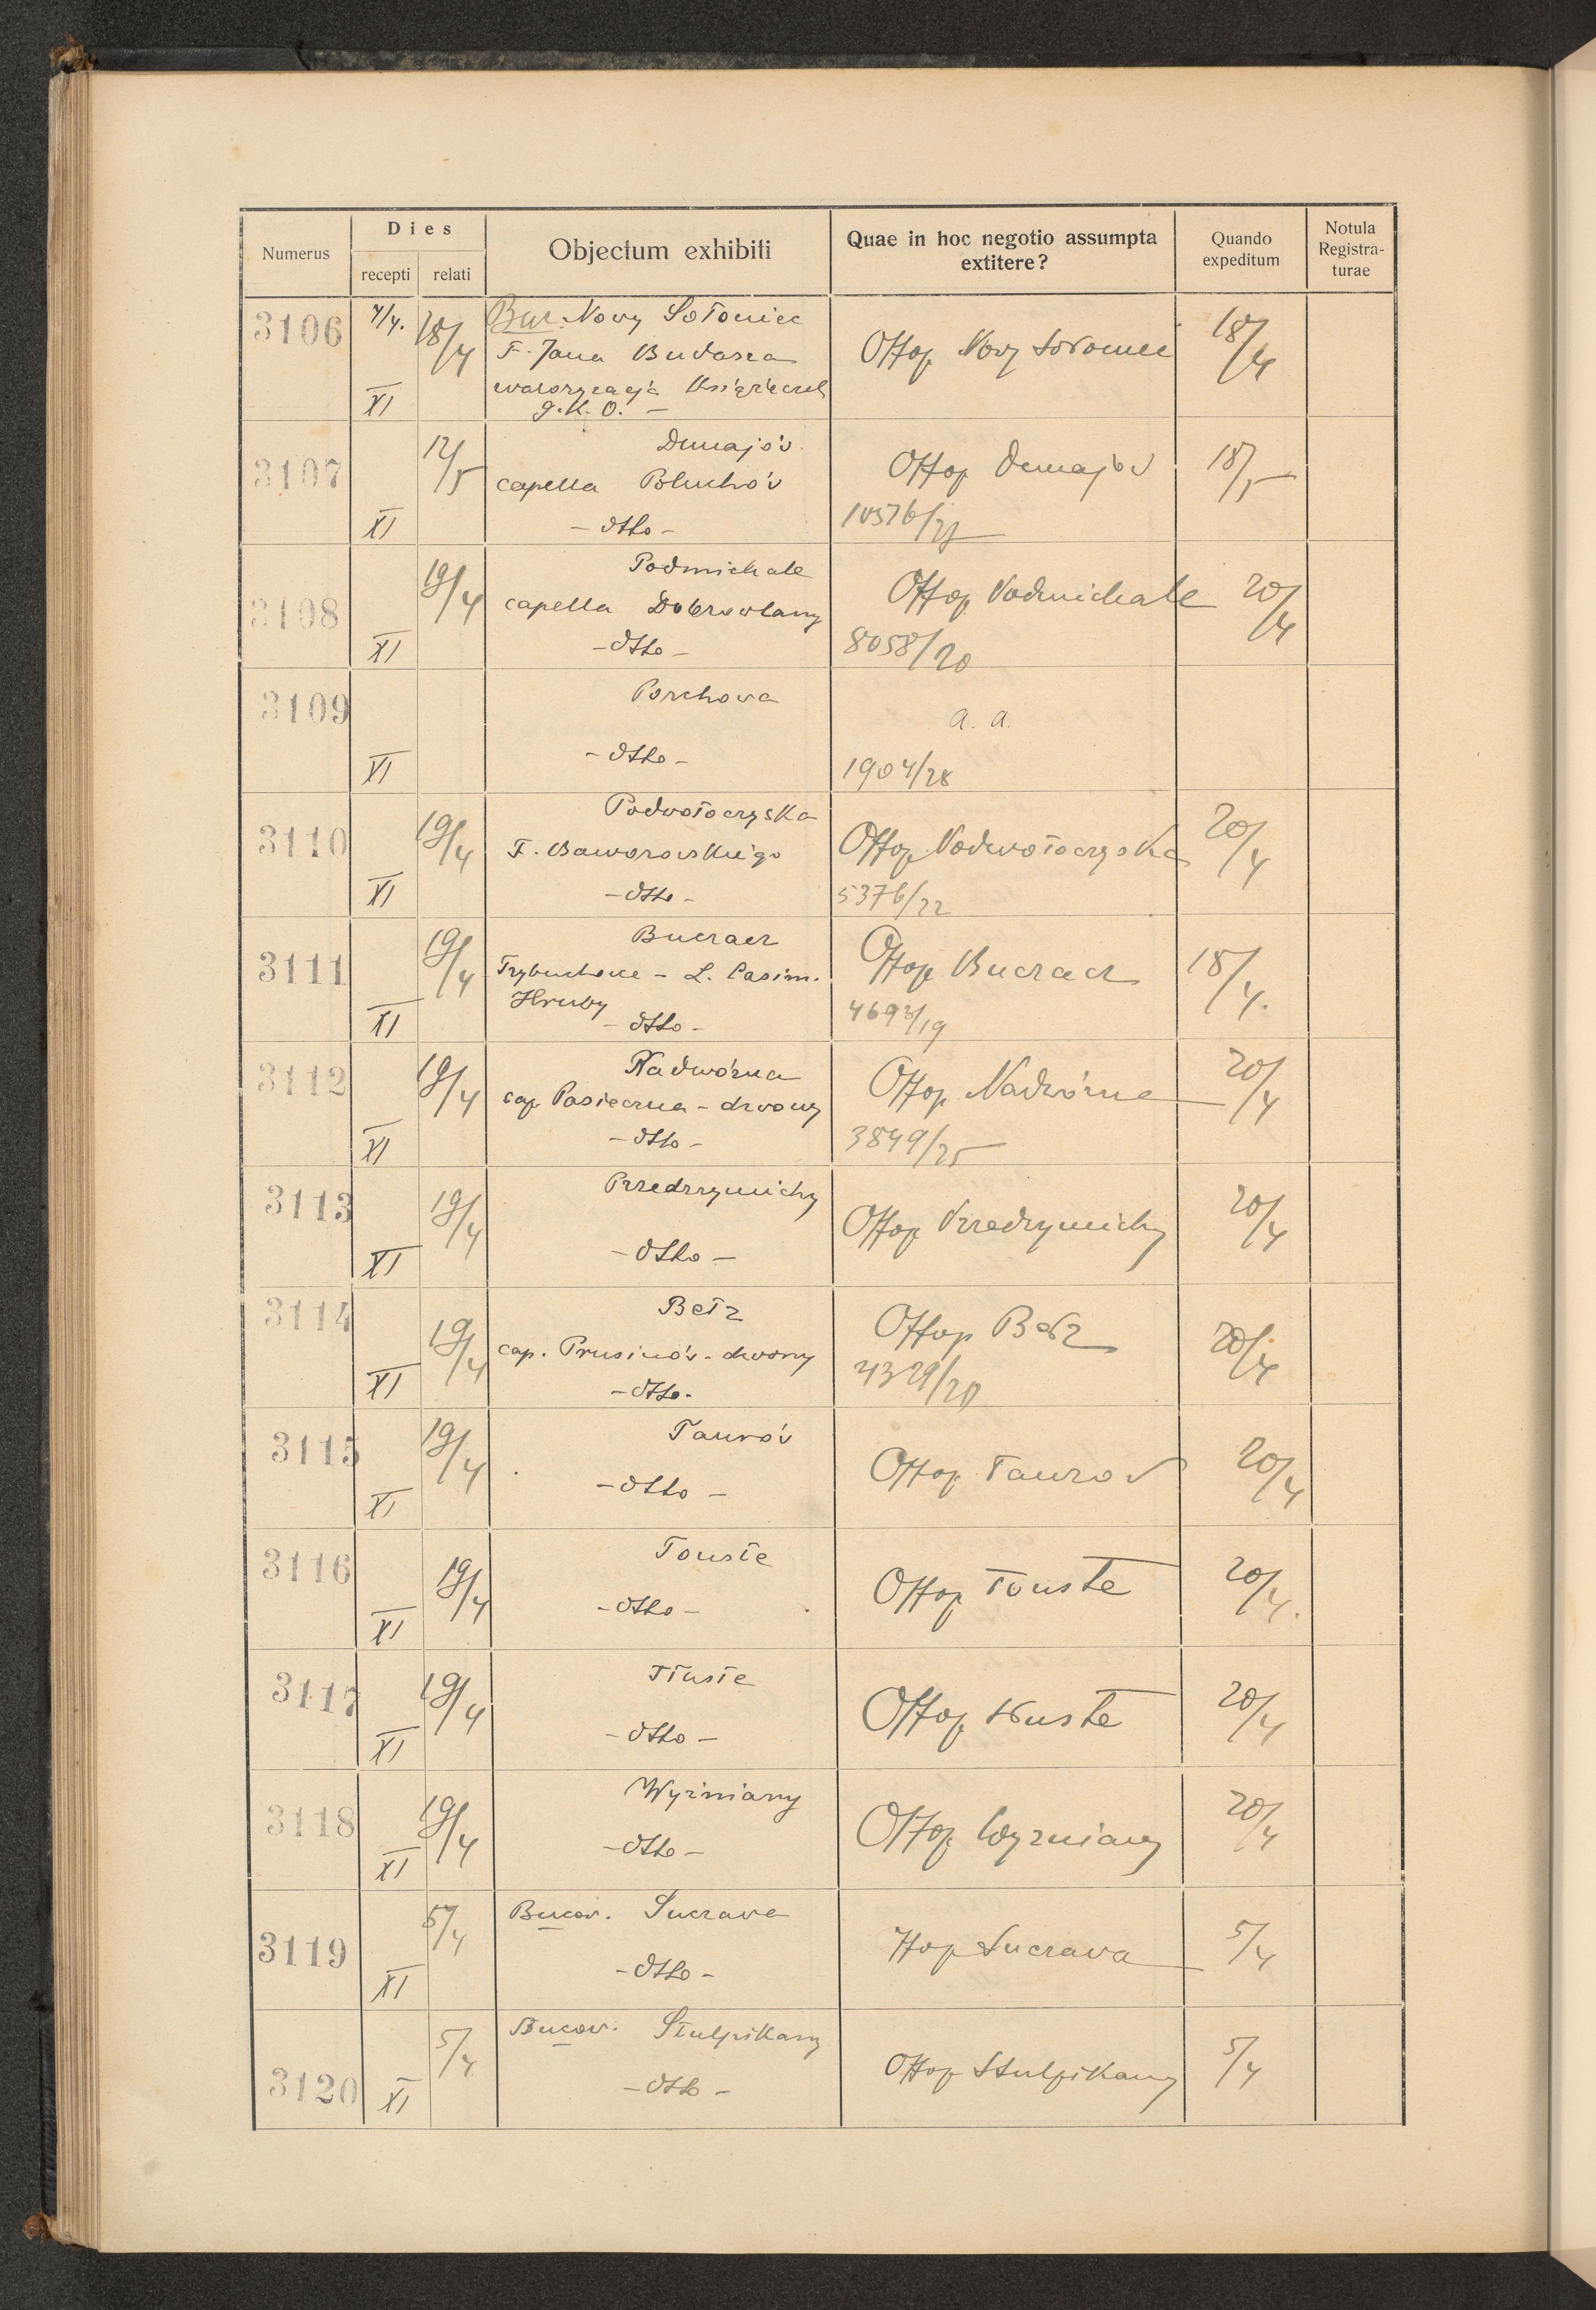 Numerus
Dies
recepti
relati
Objectum exhibiti
Quae in hoc negotio assumpta
extitere?
Quando
expeditum
Notula
Registra-
turae
3106
4/4.
18/4
XI
Buc. Nowy Sołoniec
F. Jana Budasza
waloryzacja książeczek
g.K.O. –
Offop Nowy Sołoniec
18/4
3107
12/5
XI
Dunajów
capella Pluchów
– dtto –
Offop Dunajów
10576/27
18/5
3108
19/4
XI
Podmichale
capella Dobrowlany
– dtto –
Offop Podmichale
8058/20
20/4
3109
XI
Porchowa
– dtto –
a. a.
1904/28
3110
19/4
XI
Podwołoczyska
F. Baworowskiego
– dtto –
Offop Podwołoczyska
5376/22
20/4
3111
19/4
XI
Buczacz
Trybuchowce – L. Casim.
Hruby
– dtto –
Offop Buczacz
4693/19
18/4.
3112
19/4
XI
Nadwórna
cap Pasieczna – dzwony
– dtto –
Offop Nadwórna
3849/25
20/4
3113
19/4
XI
Przedrzymichy
– dtto –
Offop Przedrzymichy
20/4
3114
19/4
XI
Bełz
cap. Prusinów – dzwony
– dtto –
Offop Bełz
4329/20
20/4
3115
19/4
XI
Taurów
– dtto –
Offop Taurow
20/4
3116
19/4
XI
Touste
– dtto –
Offop Touste
20/4.
3117
19/4
XI
Tłuste
– dtto –
Offop Tłuste
20/4
3118
19/4
XI
Wyżniany
– dtto –
Offop Wyzniany
20/4
3119
5/4
XI
Bucov. Suczawa
– dtto –
Ffop Suczawa
5/4
3120
5/4
XI
Bucov. Stulpikany
– dtto –
Offop Stulpikany
5/4